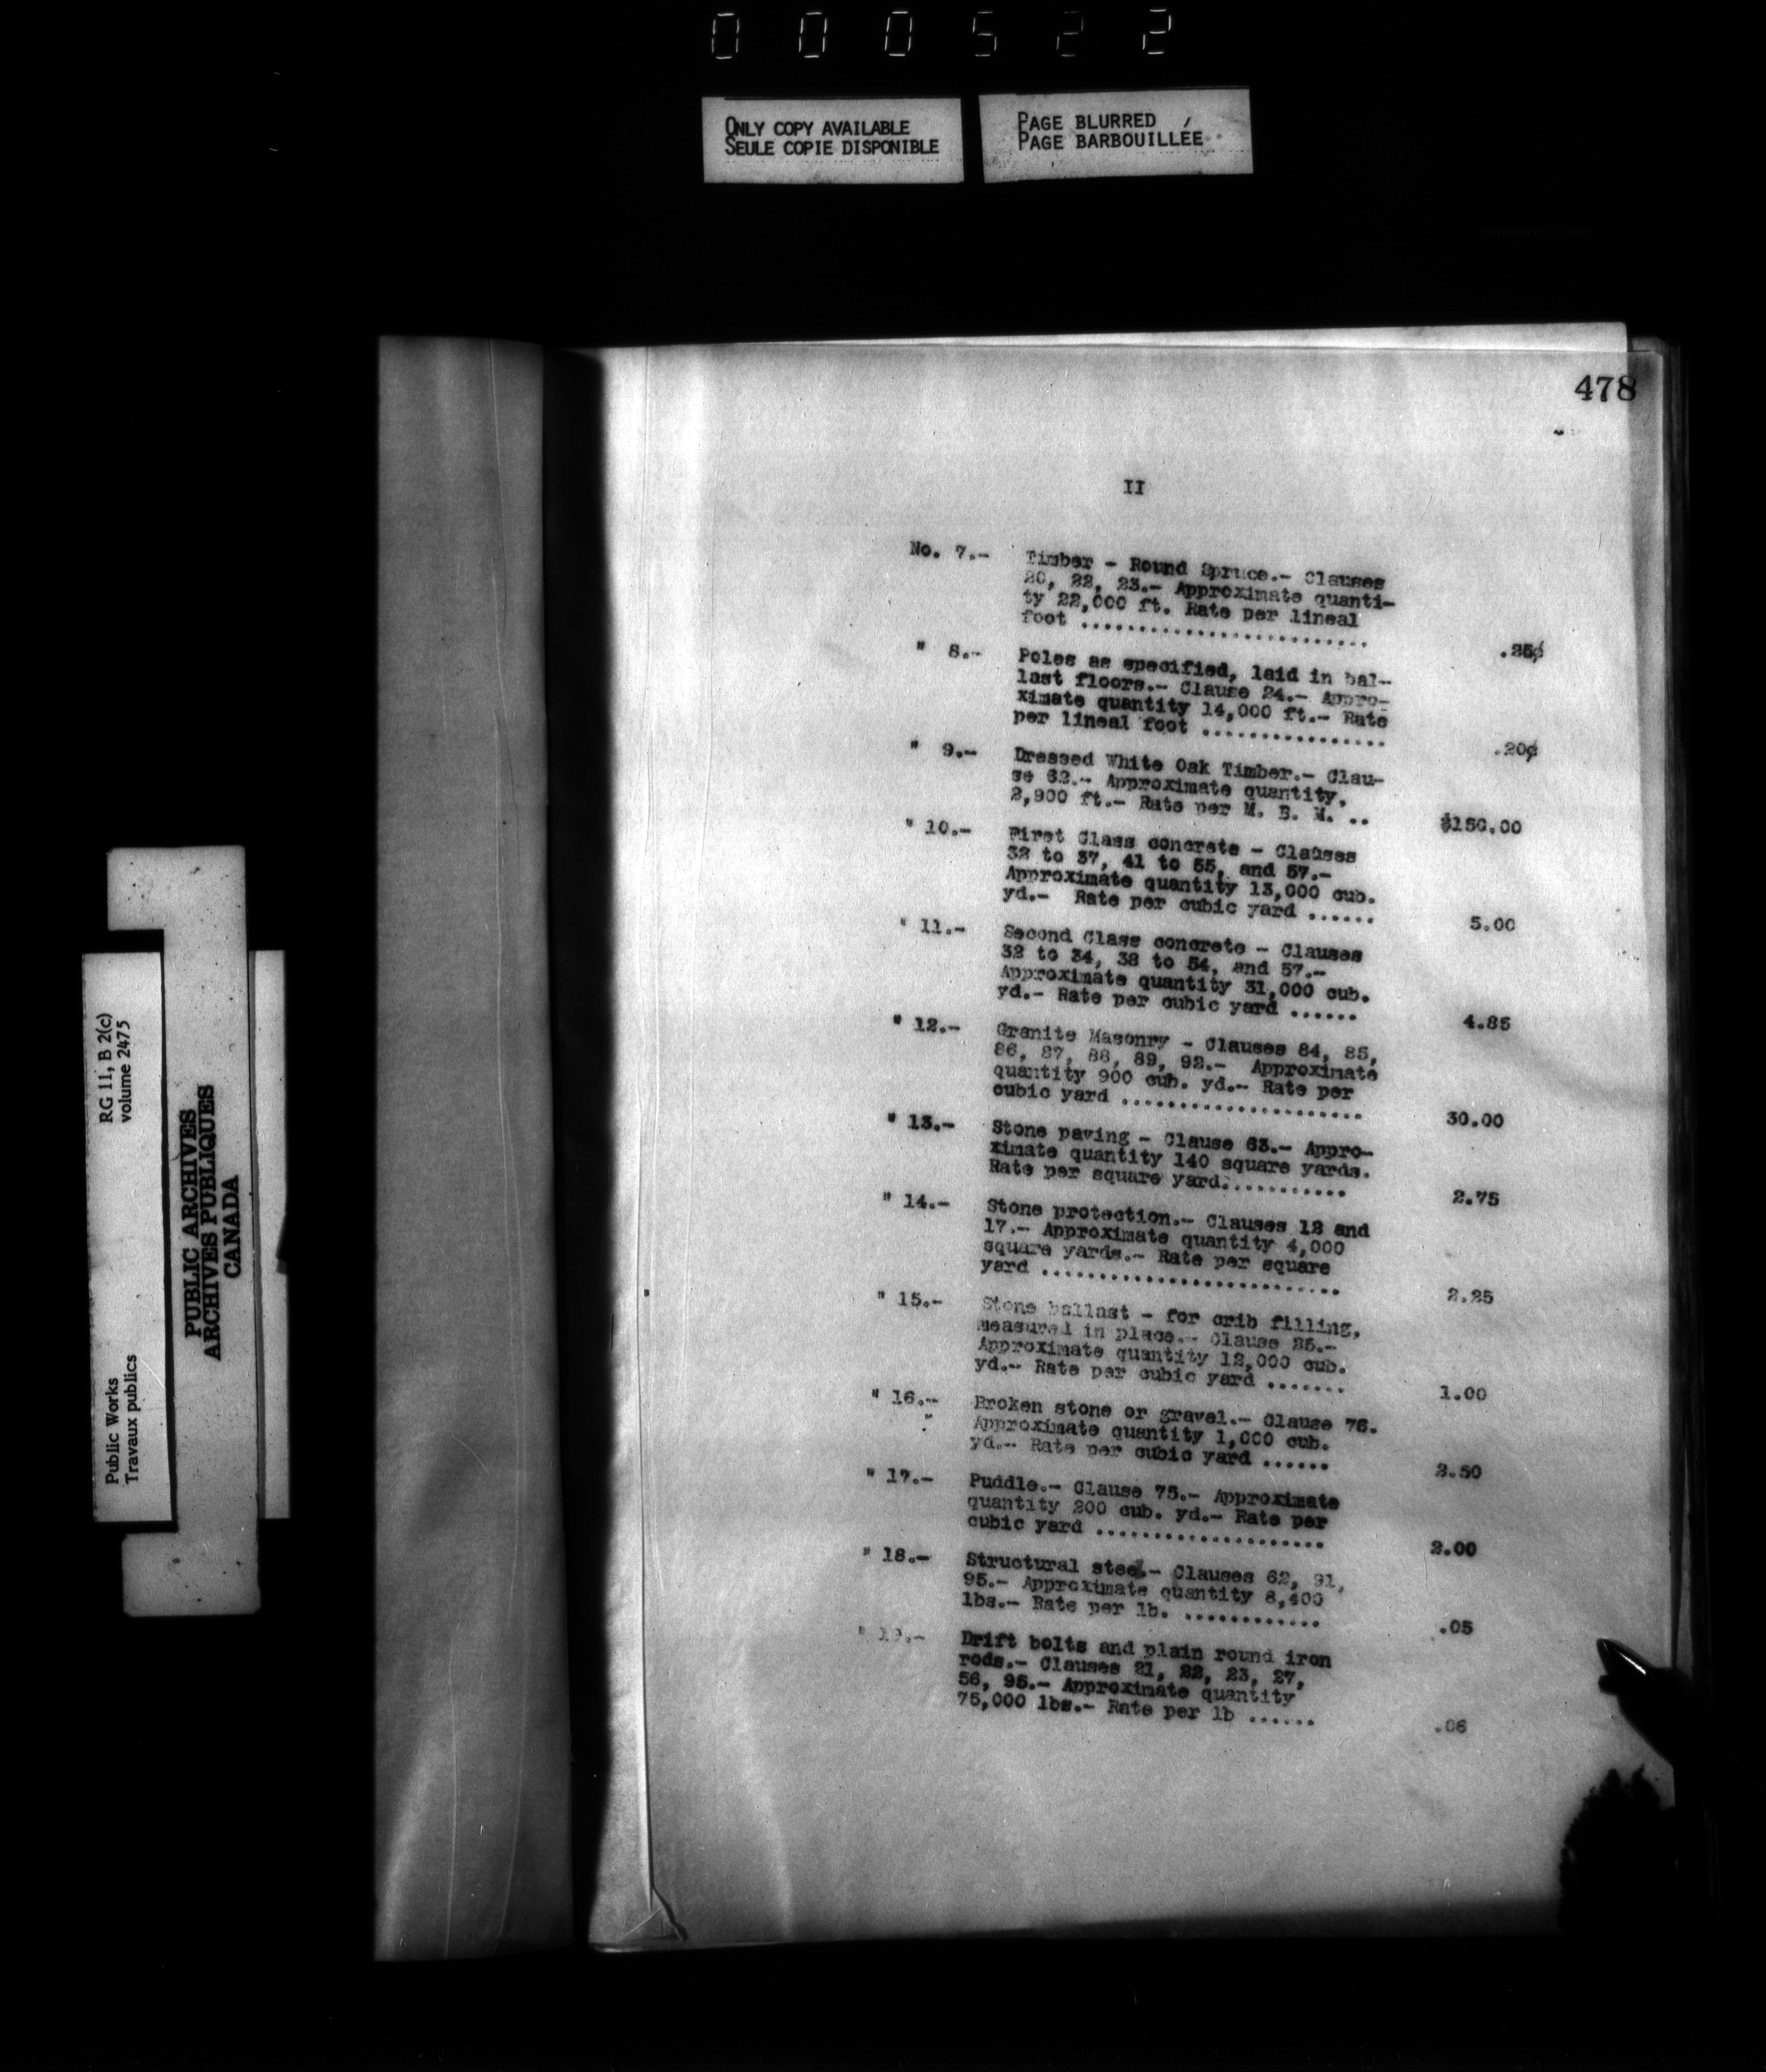 000522
ONLY COPY AVAILABLE
SEULE COPIE DISPONIBLE
PAGE BLURRED
PAGE BARBOUILLÉE
478
II
No. 7.- Timber - Round Spruce.- Clauses
20, 22, 23.- Approximate quanti-
ty 22,000 ft. Rate per lineal
foot ......................... .25¢
" 8.- Poles as specified, laid in bal-
last floors.- Clause 24.- Appro-
ximate quantity 14,000 ft.- Rate
per lineal foot ................ .20¢
" 9.- Dressed White Oak Timber.- Clau-
se 62.- Approximate quantity,
2,900 ft.- Rate per M. B. M. .. $150.00
" 10.- First Class concrete - Clauses
32 to 37, 41 to 55, and 57.-
Approximate quantity 13,000 cub.
yd.- Rate per cubic yard ...... 5.00
" 11.- Second Class concrete - Clauses
32 to 34, 38 to 54, and 57.-
Approximate quantity 31,000 cub.
yd.- Rate per cubic yard ...... 4.85
" 12.- Granite Masonry - Clauses 84, 85,
86, 87, 88, 89, 92.- Approximate
quantity 900 cub. yd.- Rate per
cubic yard ..................... 30.00
" 13.- Stone paving - Clause 63.- Appro-
ximate quantity 140 square yards.
Rate per square yard........... 2.75
" 14.- Stone protection.- Clauses 12 and
17.- Approximate quantity 4,000
square yards.- Rate per square
yard .......................... 2.25
" 15.- Stone ballast - for crib filling,
measured in place.- Clause 25.-
Approximate quantity 12,000 cub.
yd.- Rate per cubic yard ....... 1.00
" 16.- Broken stone or gravel.- Clause 76.
Approximate quantity 1,000 cub.
yd.- Rate per cubic yard ...... 2.50
" 17.- Puddle.- Clause 75.- Approximate
quantity 200 cub. yd.- Rate per
cubic yard .................... 2.00
" 18.- Structural steel.- Clauses 62, 91,
95.- Approximate quantity 8,400
lbs.- Rate per lb. ............ .05
" 19.- Drift bolts and plain round iron
rods.- Clauses 21, 22, 23, 27,
56, 95.- Approximate quantity
75,000 lbs.- Rate per lb ...... .06
RG 11, B 2(c)
volume 2475
Public Works
Travaux publics
PUBLIC ARCHIVES
ARCHIVES PUBLIQUES
CANADA